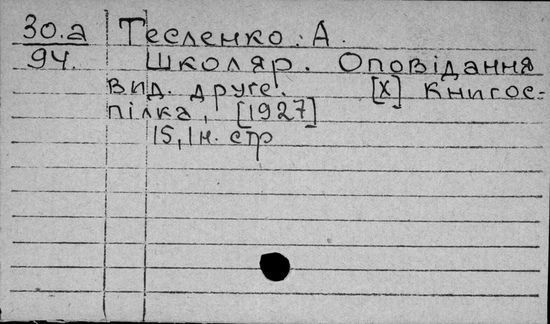 30.а Тесленко. А.
94. Школяр. Оповідання
вид. друге. [Х] Книгос-
пілка, [1927]
15, 1 н. стр